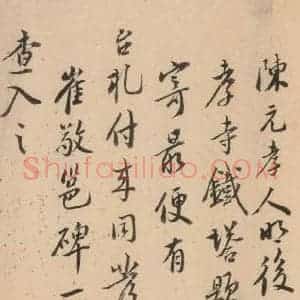 陳元孝人明後
孝寺鐵塔題
寄最便有
台札付来同
崔敬邕碑一
查入之
Shufaziliao.COM